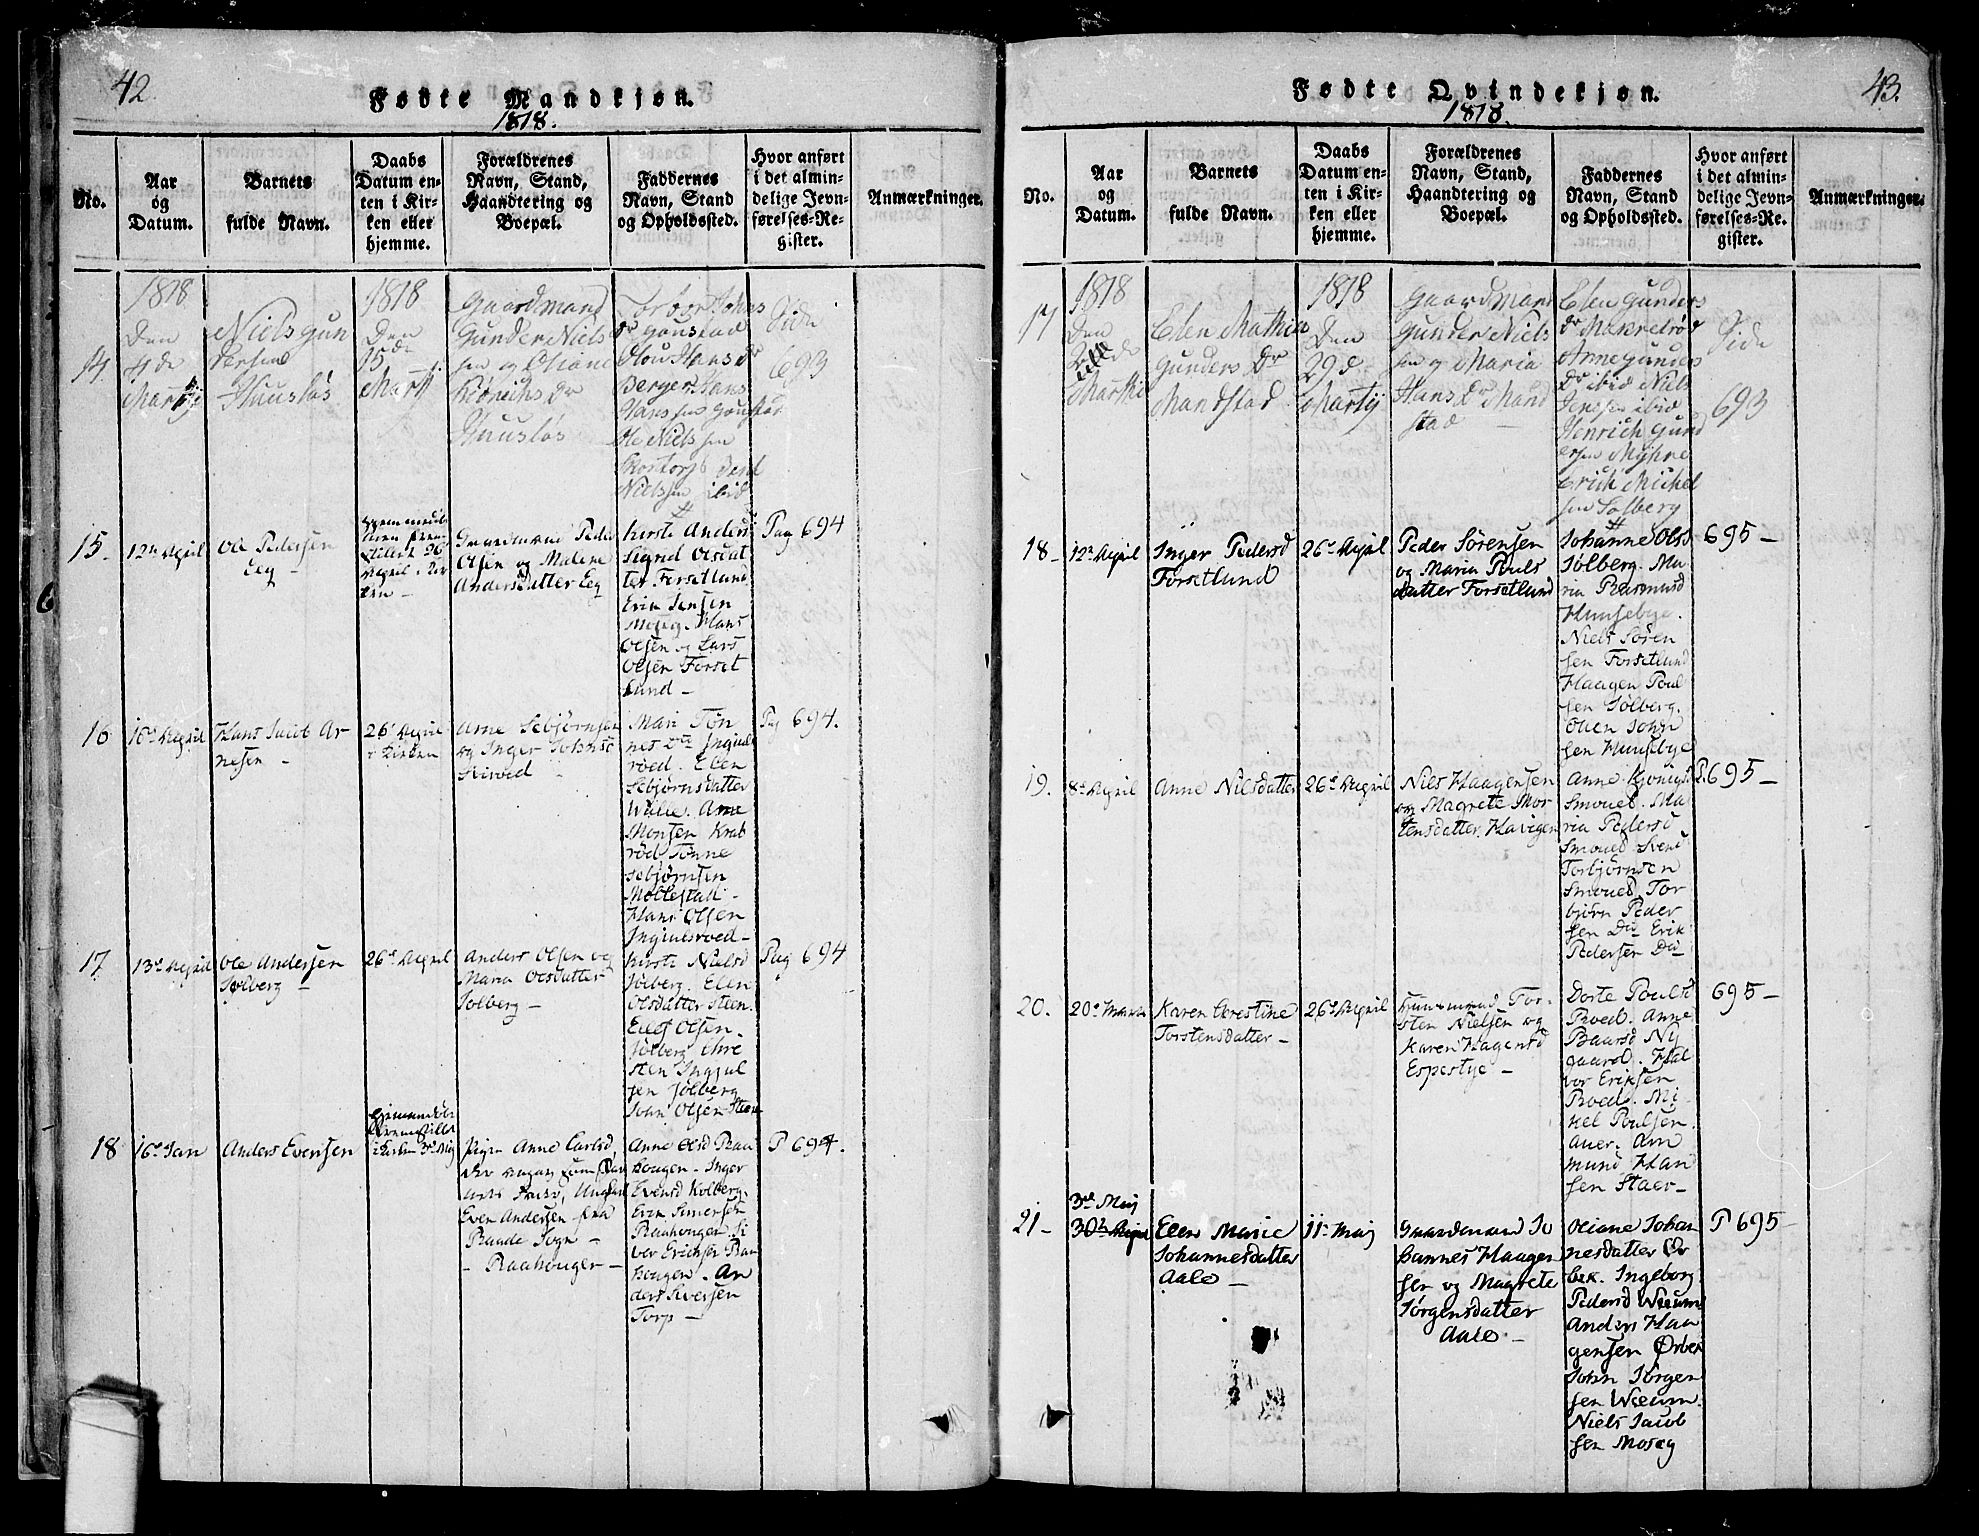 42.
Fødte Mandkjøn.
1818.
No.
Aar og Datum.
Barnets fulde Navn.
Daabs Datum enten i Kirken eller hjemme.
Forældrenes Navn, Stand, Haandtering og Boepæl.
Faddernes Navn, Stand og Opholdssted.
Hvor anført i det almindelige Jevnførelses-Register.
Anmærkninger.
14.
1818
Den
4de
Martij
Niels Gun
dersen
Huusløs
1818
Den
15de
Martij
Gaardmand
Gunder Niels
sen og
Huusløs
Goustad
Ole Nielssen
Nielssen ibid
Side
693
15.
12te April
Ole Pedersen
Eeg
26
April i Kir
ken
Gaardmand Peder
Olsen og Malene
Andersdatter Eeg
Kirsti Anders
Sigrid Olsdat
ter Forsetlund
Erik Jensen
Moseg. Hans
Olsen og Lars
Olsen Forset
lund
Pag 694
16
16de April
Hans Jacob Ar
nesen
26 April
i Kirken
Arne Sebjørnsen
og Inger Johnsd
Mari Tøn
nes Dtr Ingiuls
røed. Elen
Sebjørnsdatter
Arne
Monsen Krab
rød Tønne
Sebjørnsen
Møllestad.
Hans Olsen
Ingiulsroed
Pag 694.
17
13de April
Ole Andersen
Solberg
26de April
Anders Olsen og
Maria Olsdatter
Solberg
Kirsti Nielsd
Solberg. Elen
Olsdatter Steen.
Ellef Olsen
Solberg Chri
sten Ingiul
sen Solberg
Ivar Olsen Steen
Pag 694
18
16de Jan
Anders Evensen
i Kirken 3de Maj
Pigen Anne Carlsd
Even Andersen fra
Raade Sogn
Raahouger
Anne Olsd Raa
hougen. Inger
Evensd Kolberg.
Erik Simensen
Raahougen. Si
ver Erichsen Raa
hougen. An
ders Siversen
Torp
P 694.
43.
Fødte Qvindekjøn.
1818.
No.
Aar og Datum.
Barnets fulde Navn.
Daabs Datum enten i Kirken eller hjemme.
Forældrenes Navn, Stand, Haandtering og Boepæl.
Faddernes Navn, Stand og Opholdssted.
Hvor anført i det almindelige Jevnførelses-Register.
Anmærkninger.
17
1818
Den
Martij
Elen Mathia
Gunders Dr
Mandstad
1818
Den
29de
Martij
Gaardmand
Gunder Niels
sen og Maria
Hans Dr Mand
stad
Elen Gunders
Dr Makrelrød
Anne Gunders
Dr ibid Niels
Jenssen ibid
Henrich Gund
ersen Myhre
Erich Mickel
sen Solberg
Side
693
18
12te April
Inger Pedersd
Forsetlund
26de April
Peder Sørensen
og Maria Pouls
datter Forsetlund
Johanne Olsd
Solberg. Ma
ria Rasmusd
Huusebye.
Niels Søren
sen Forsetlund
Haagen Poul
sen Solberg.
Olien John
sen Huusebye
695
19.
8de April
Anne Nilsdatter
26de April
Niels Haagensen
og Magrete Mor
tensdatter. Havigen
Anne
Smoued. Ma
ria Pedersd
Smoued Svend
Torbjørnsen
Smoued. Tor
bjørn Peder
sen Do Erik
Pedersen Do
P. 695
20.
20de Marts
Karen Cerestine
Torstensdatter
26de April
Huusmand Tor
sten Nielsen og
Karen Hagensd
Espestye
Dorte Poulsd
Roed. Anne
Baarsd Ny
gaard. Hal
vor Eriksen
Roed. Mi
kel Poulsen
Auer. Am
mund Han
sen Staer
695
21
3de Maj
30te April
Elen Marie
Johannesdatter
Aale
11te Maj
Gaardmand Jo
hannes Haagen
sen og Magrete
Jørgensdatter
Aale
Oliane Johan
nesdatter Ør
bek. Ingeborg
Pedersd Wiium
Anders Haa
gensen Ørbek
John Jørgen
sen Wiium.
Niels Jacob
sen Moseg
P 695